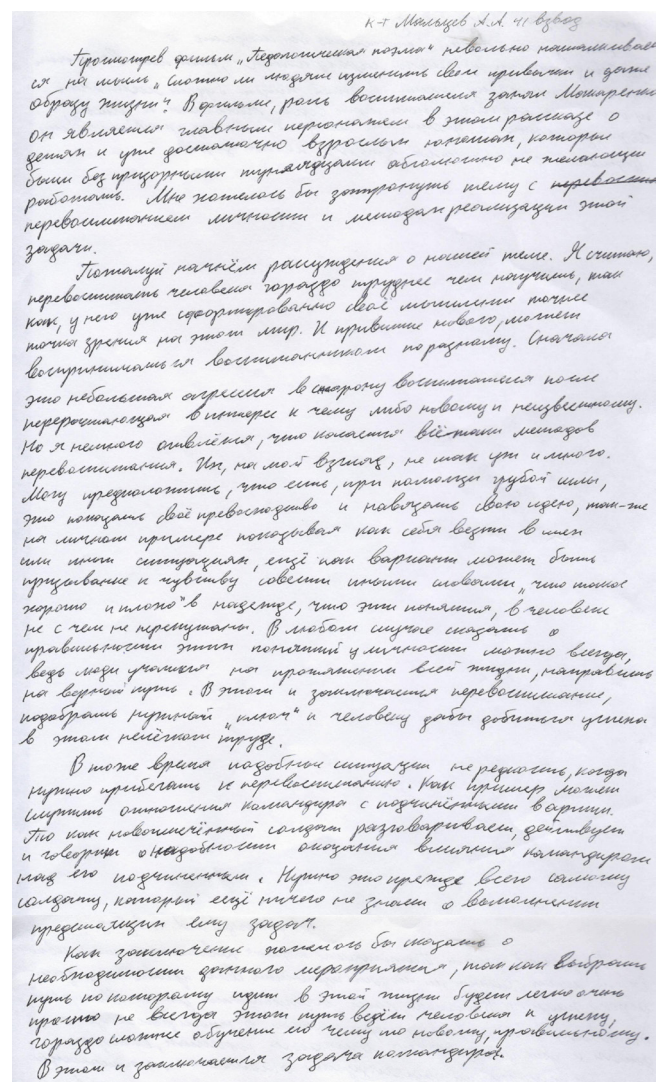 к-т Мальцев А.А. 41 взвод
Просмотрев фильм „Педагогическая поэма" невольно наталкивает
ся на мысль „Сложно ли людям изменить свои привычки и даже
образу жизни"? В фильме, роль воспитателя занял Макаренко
он является главным персонажем в этом рассказе о
детях и уже достаточно взрослых юношах, которые
были безпризорными тунеядцами абсолютно не желающии
работать. Мне хотелось бы затронуть тему с перевоспит
перевоспитанием личности и методах реализации этой
задачи.
Пожалуй начнём рассуждения о нашей теме. Я считаю,
перевоспитать человека гораздо труднее чем научить, так
как, у него уже сформированно своё мышление
точка зрения на этот мир. И привитие нового, может
восприниматься воспитанником по разному. Сначала
это небольшая агрессия в сторону воспитателя после
перерастающая в интерес к чему либо новому и неизвестному.
Но я немного отвлёкся, что касается всётаки методов
перевоспитания. Их, на мой взгляд, не так уж и много.
Могу предположить, что есть, при помощи грубой силы,
это показать своё превосходство и навязать свою идею, так-же
на личном примере показывая как себя вести в тех
или иных ситуациях, ещё как вариант может быть
призывание к чувству совести иными словами „что такое
хорошо и плохо" в надежде, что эти понятия, в человеке
не с чем не перепутаны. В любом случае сказать о
правильности этих понятий у личности можно всегда,
ведь люди учатся на протяжении всей жизни, направить
на верный путь. В этом и заключается перевоспитание,
подобрать нужный „ключ" к человеку дабы добиться успеха
в этом нелёгком труде.
В тоже время подобные ситуации не редкость, когда
нужно прибегать к перевоспитанию. Как пример, может
служить отношения командира с подчинёнными в армии.
То как новоиспечённый солдат разговаривает, действует
и говорит о надобности оказания влияния командиром
над его подчиненным. Нужно это прежде всего самому
солдату, который ещё ничего не знает о выполнении
предстоящих ему задач.
Как заключение хотелось бы сказать о
необходимости данного мероприятия, так как выбрать
путь по которому идти в этой жизни будет легко очень
просто не всегда этот путь ведёт человека к успеху,
гораздо сложнее обучение его чему то новому, правильному.
В этом и заключается задача командира.